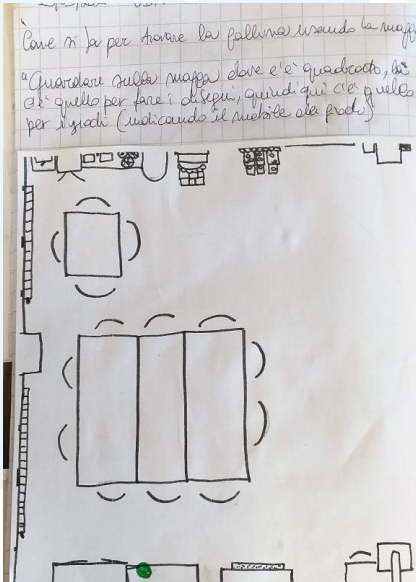 Come si fa per trovare la gallina usando la mappa
"Guardare sulla mappa dove c'è quadrato, lì
c'è quello per fare i disegni, quindi qui c'è quello
per i (indicando il mobile